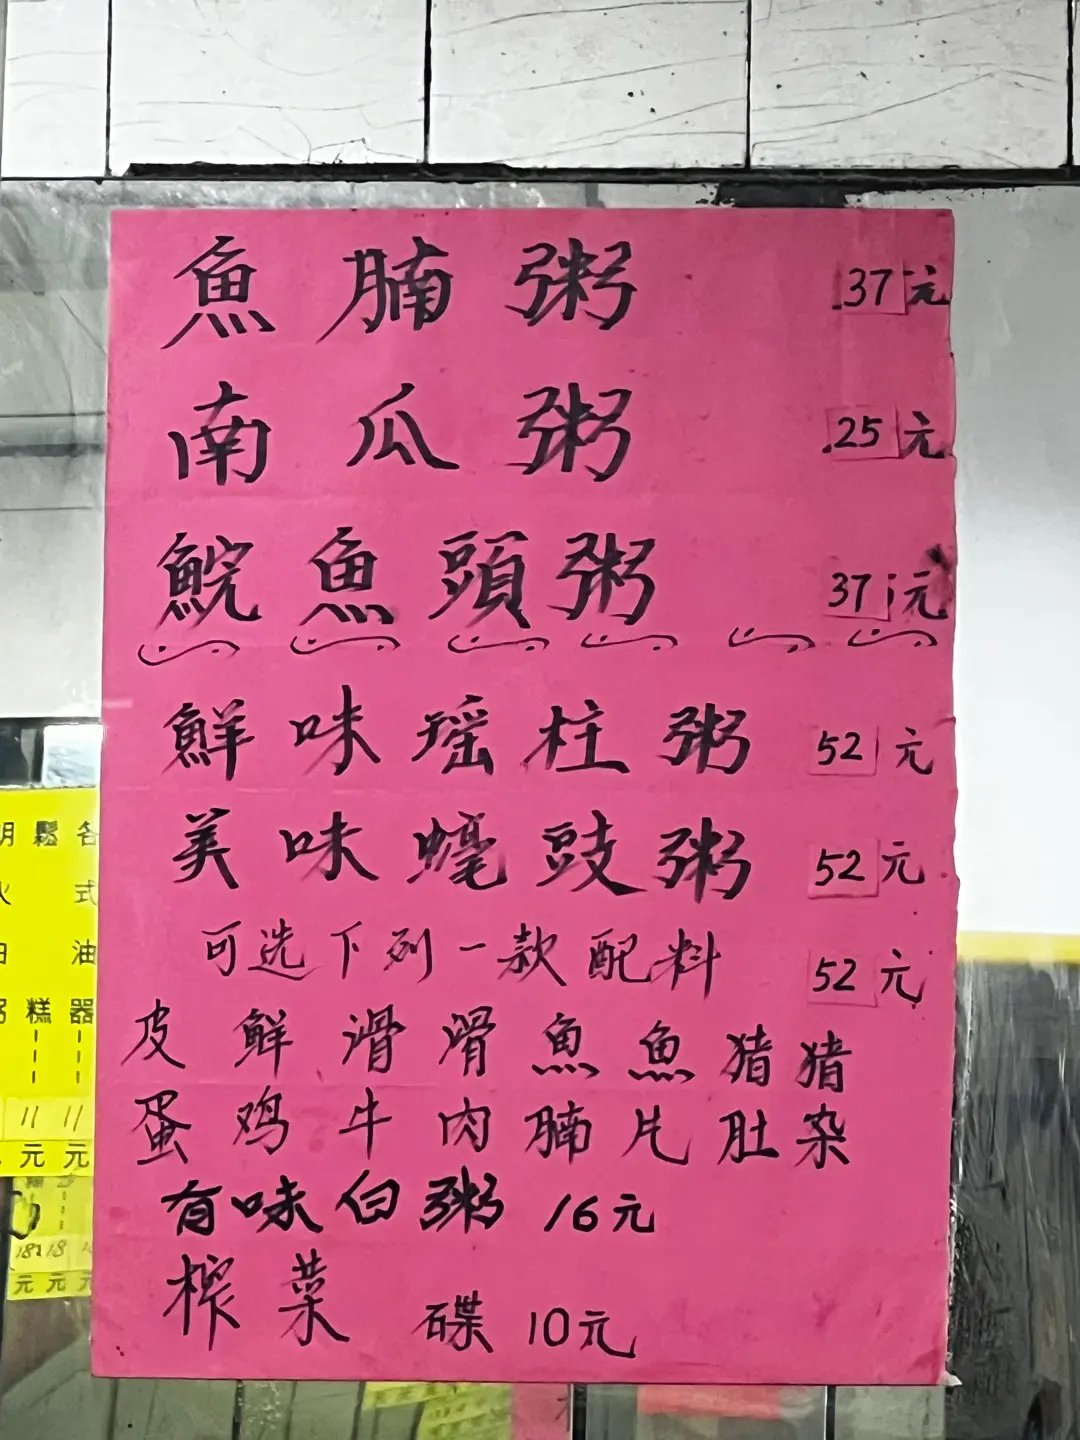 魚腩粥 37元
南瓜粥 25元
鯇魚頭粥 37元
鮮味瑶柱粥 52元
美味蠔豉粥 52元
可选下列一款配料 52元
皮鮮滑滑魚魚猪猪
蛋鸡牛肉腩片肚杂
有味白粥 16元
榨菜 碟 10元
鬆糕 11元
各式油器 11元